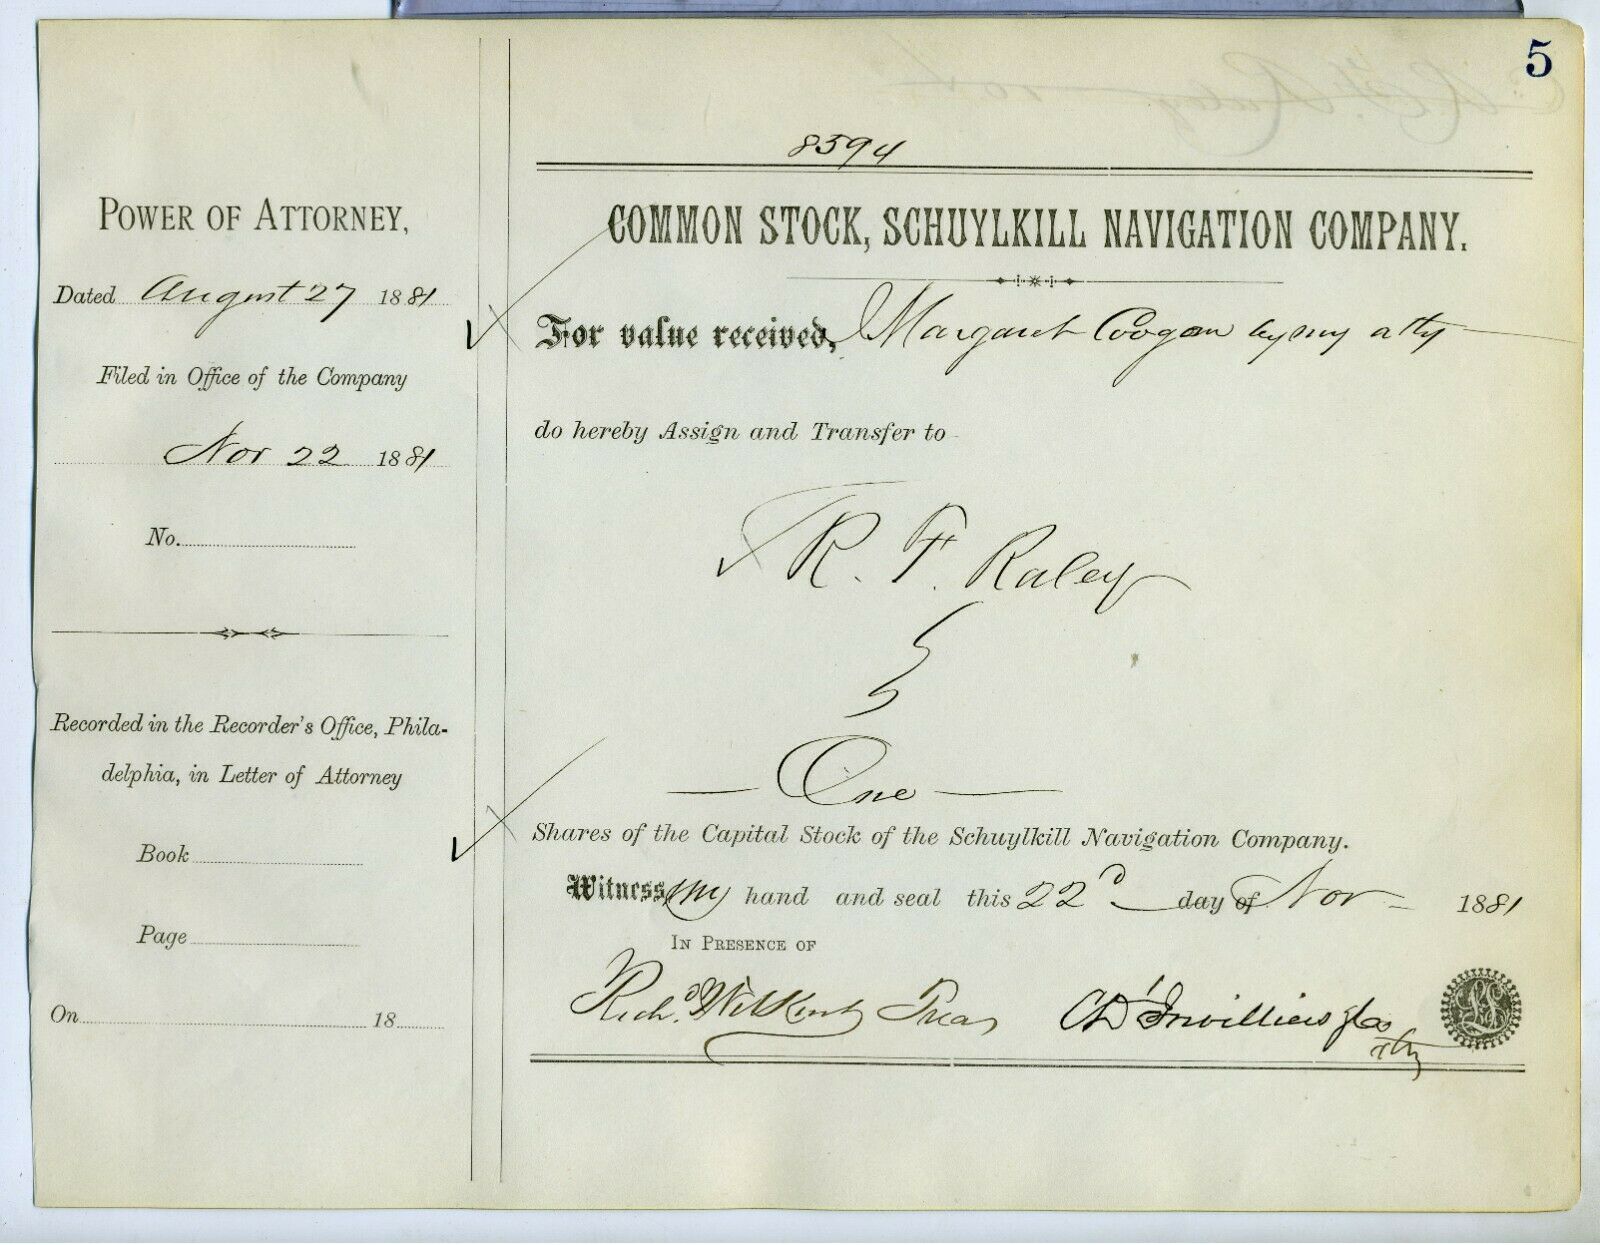 5
8594
POWER OF ATTORNEY,
Dated August 27 1881
Filed in Office of the Company
Nov 22 1881
No.
Recorded in the Recorder's Office, Phila-
delphia, in Letter of Attorney
Book
Page
On 18
COMMON STOCK, SCHUYLKILL NAVIGATION COMPANY.
For value received, I Margaret Coogan by my atty
do hereby Assign and Transfer to
R. F. Raley
One
Shares of the Capital Stock of the Schuylkill Navigation Company.
Witness my hand and seal this 22d day of Nov 1881
IN PRESENCE OF
Richd. Wilkins Treas
C D'Invilliers
Atty
LS